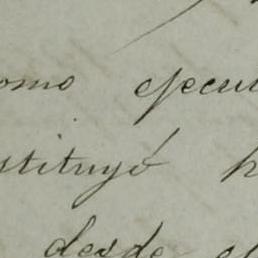 omo ejecu
stituyó h
desde el